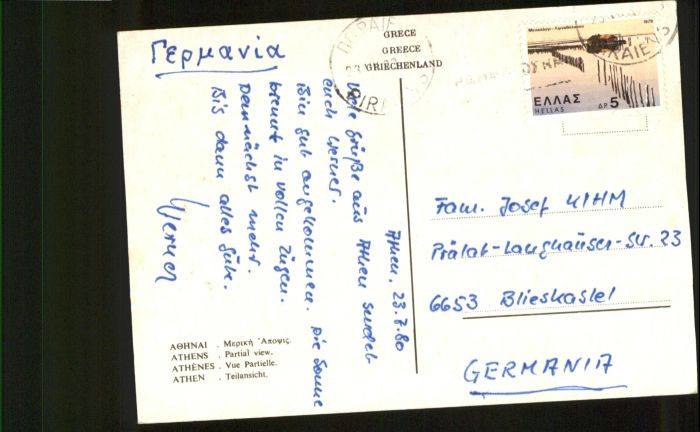 Γερμανία
GRECE
GREECE
GRIECHENLAND
Athen. 23.7.80
Viele Grüße aus Athen sendet
euch Werner.
Bin gut angekommen. Die Sonne
brennt in vollen Zügen.
Demnächst mehr.
Bis dann alles Gute.
Werner
ΑΘΗΝΑΙ . Μερική Ἄποψις.
ATHENS . Partial view.
ATHÈNES . Vue Partielle.
ATHEN . Teilansicht.
1979
ΕΛΛΑΣ
HELLAS
ΔΡ 5
Fam. Josef UHM
Prälat-Langhäuser-Str. 23
6653 Blieskastel
GERMANIA